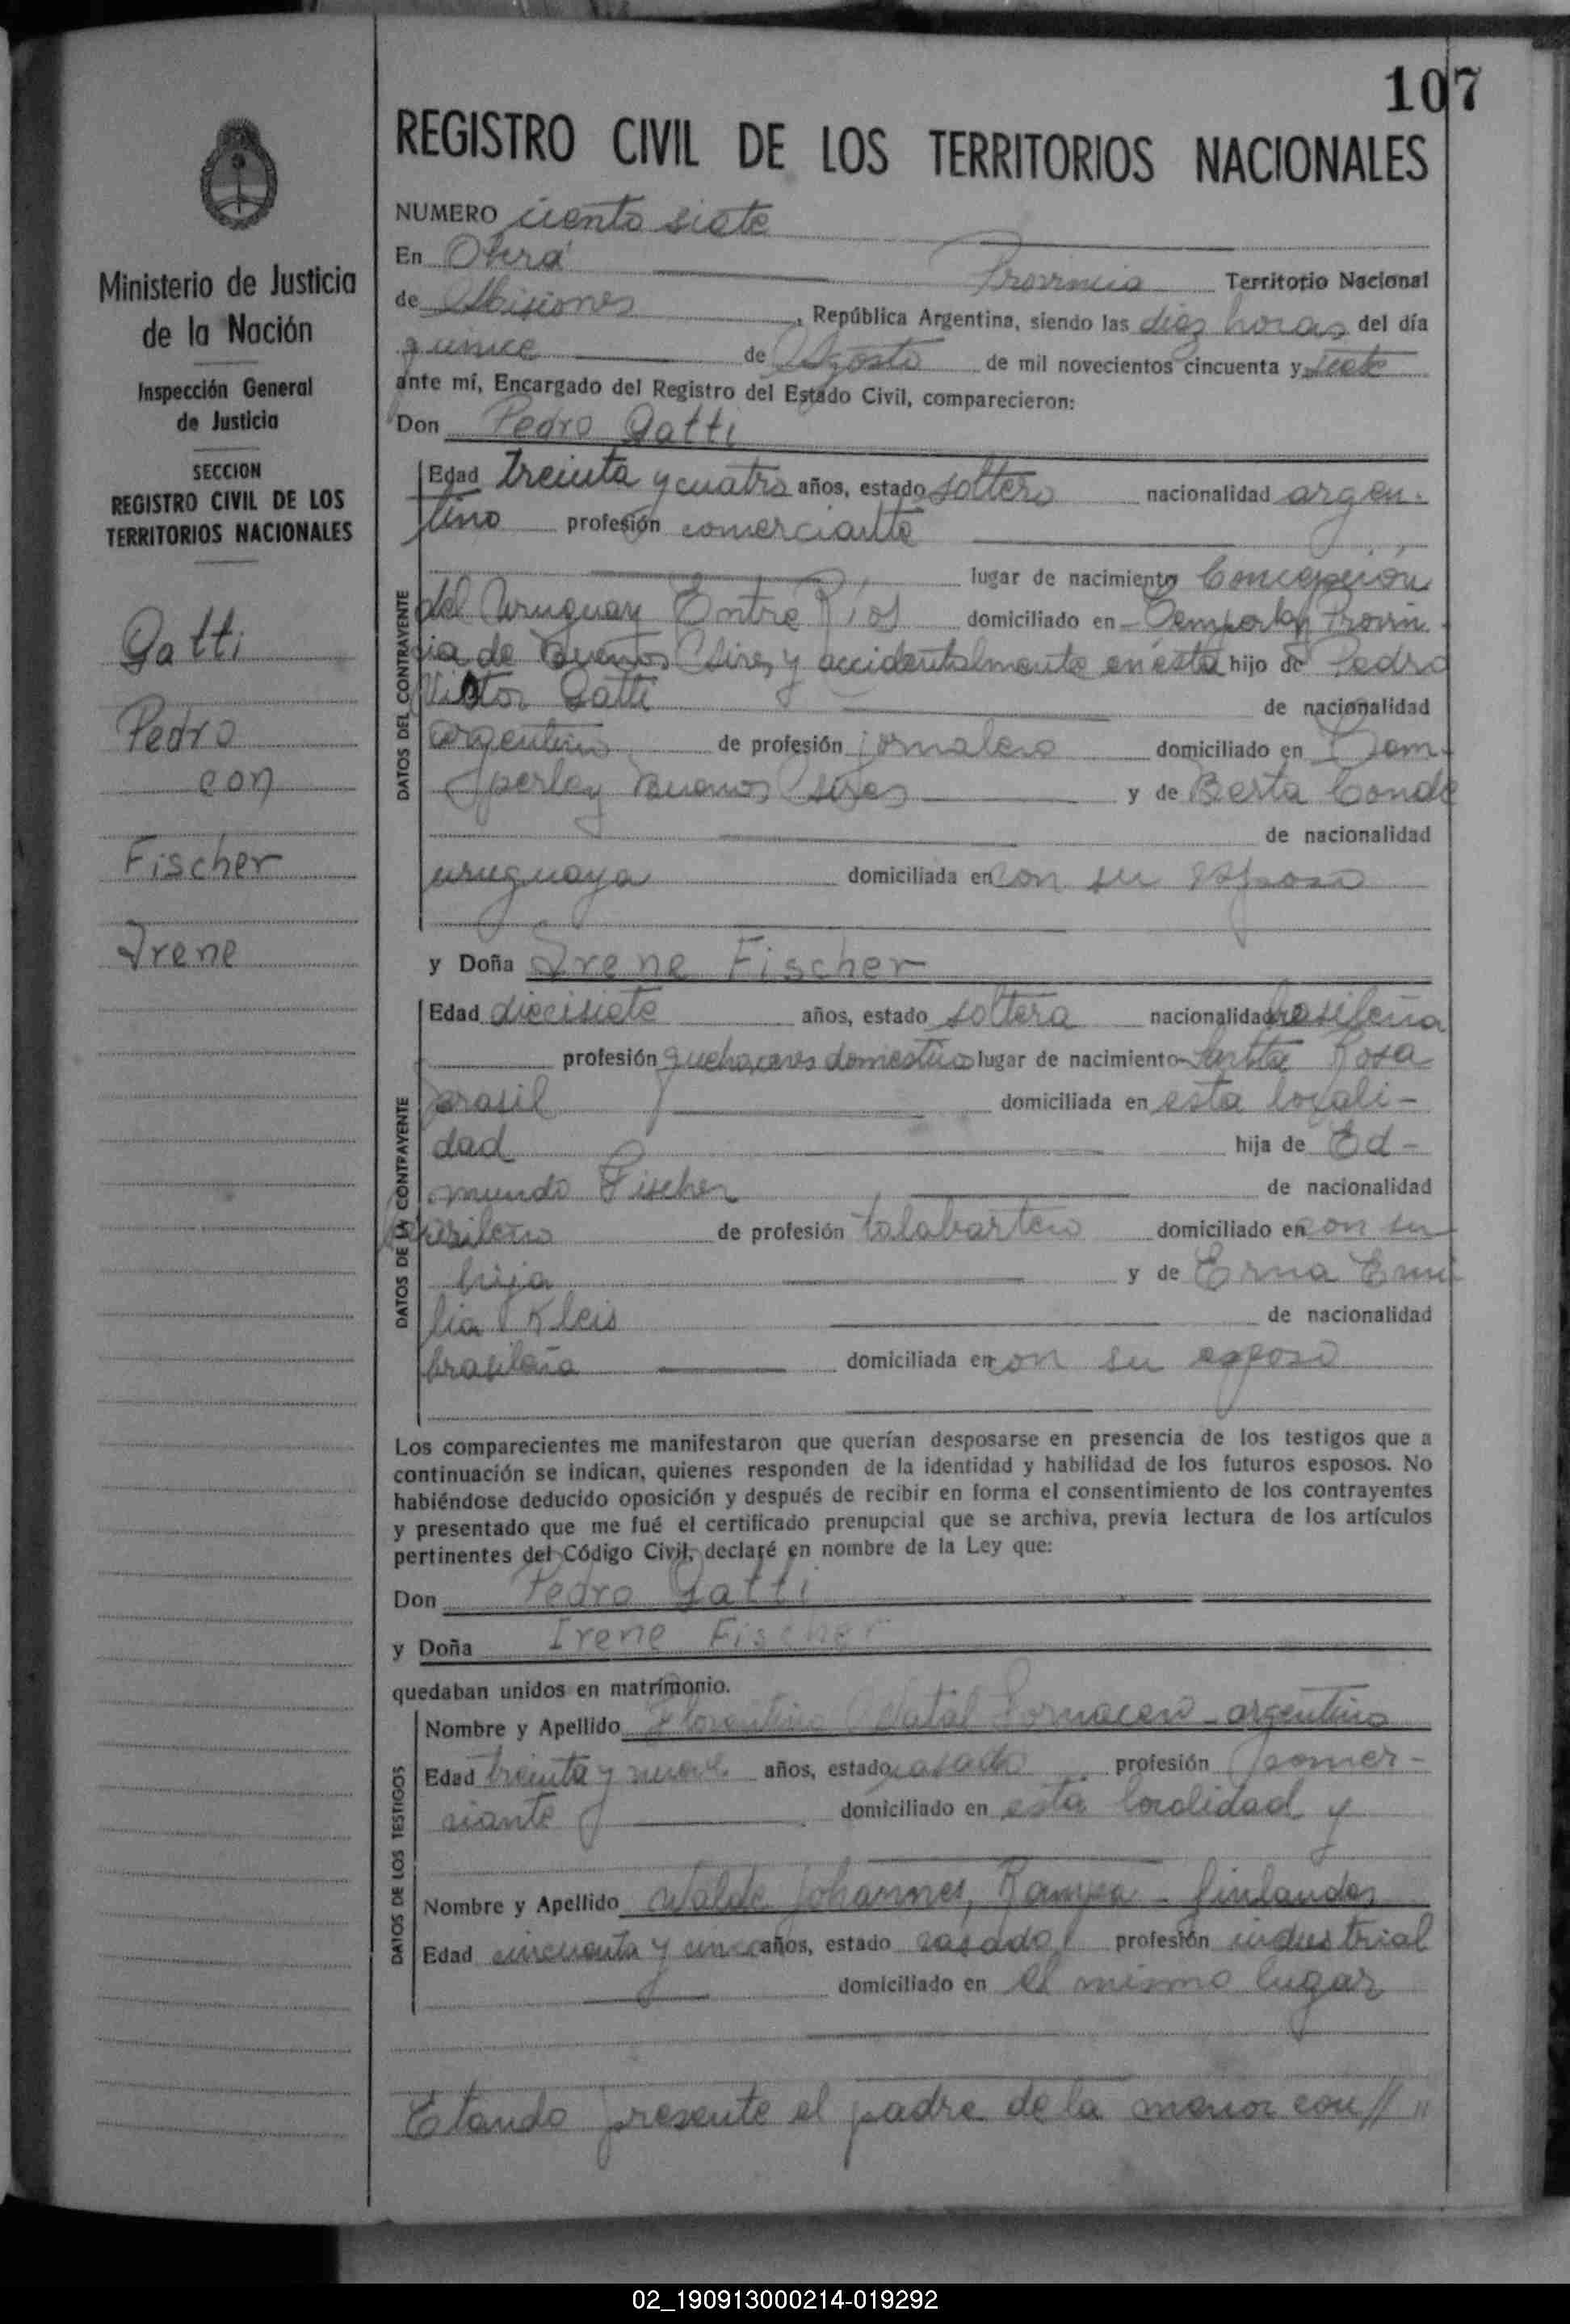 107
REGISTRO CIVIL DE LOS TERRITORIOS NACIONALES
Ministerio de Justicia
de la Nación
Inspección General
de Justicia
SECCION
REGISTRO CIVIL DE LOS
TERRITORIOS NACIONALES
Gatti
Pedro
con
Fischer
Irene
NUMERO ciento siete
En Oberá Provincia Territorio Nacional
de Misiones, República Argentina, siendo las diez horas del día
quince de Agosto de mil novecientos cincuenta y siete
ante mí, Encargado del Registro del Estado Civil, comparecieron:
Don Pedro Gatti
DATOS DEL CONTRAYENTE
Edad treinta y cuatro años, estado soltero nacionalidad argen-
tino profesión comerciante
lugar de nacimiento Concepción
del Uruguay Entre Ríos domiciliado en Temperley Provin
cia de Buenos Aires y accidentalmente en ésta hijo de Pedro
Victor Gatti de nacionalidad
argentino de profesión jornalero domiciliado en Tem-
perley Buenos Aires y de Berta Conde
de nacionalidad
uruguaya domiciliada en con su esposo
y Doña Irene Fischer
DATOS DE LA CONTRAYENTE
Edad diecisiete años, estado soltera nacionalidad brasileña
profesión quehaceres domesticos lugar de nacimiento Santa Rosa
Brasil domiciliada en esta locali-
dad hija de Ed-
mundo Fischer de nacionalidad
brasileño de profesión talabartero domiciliado en con su
hija y de Erna Emi
lia Kleis de nacionalidad
brasileña domiciliada en con su esposo
Los comparecientes me manifestaron que querían desposarse en presencia de los testigos que a
continuación se indican, quienes responden de la identidad y habilidad de los futuros esposos. No
habiéndose deducido oposición y después de recibir en forma el consentimiento de los contrayentes
y presentado que me fué el certificado prenupcial que se archiva, previa lectura de los artículos
pertinentes del Código Civil, declaré en nombre de la Ley que:
Don Pedro Gatti
y Doña Irene Fischer
quedaban unidos en matrimonio.
DATOS DE LOS TESTIGOS
Nombre y Apellido Florentino Natal argentino
Edad treinta y nueve años, estado casado profesión comer-
ciante domiciliado en esta localidad y
Nombre y Apellido Johannes finlandes
Edad cincuenta y cinco años, estado casado profesión industrial
domiciliado en el mismo lugar
Estando presente el padre de la menor con //"
02_190913000214-019292